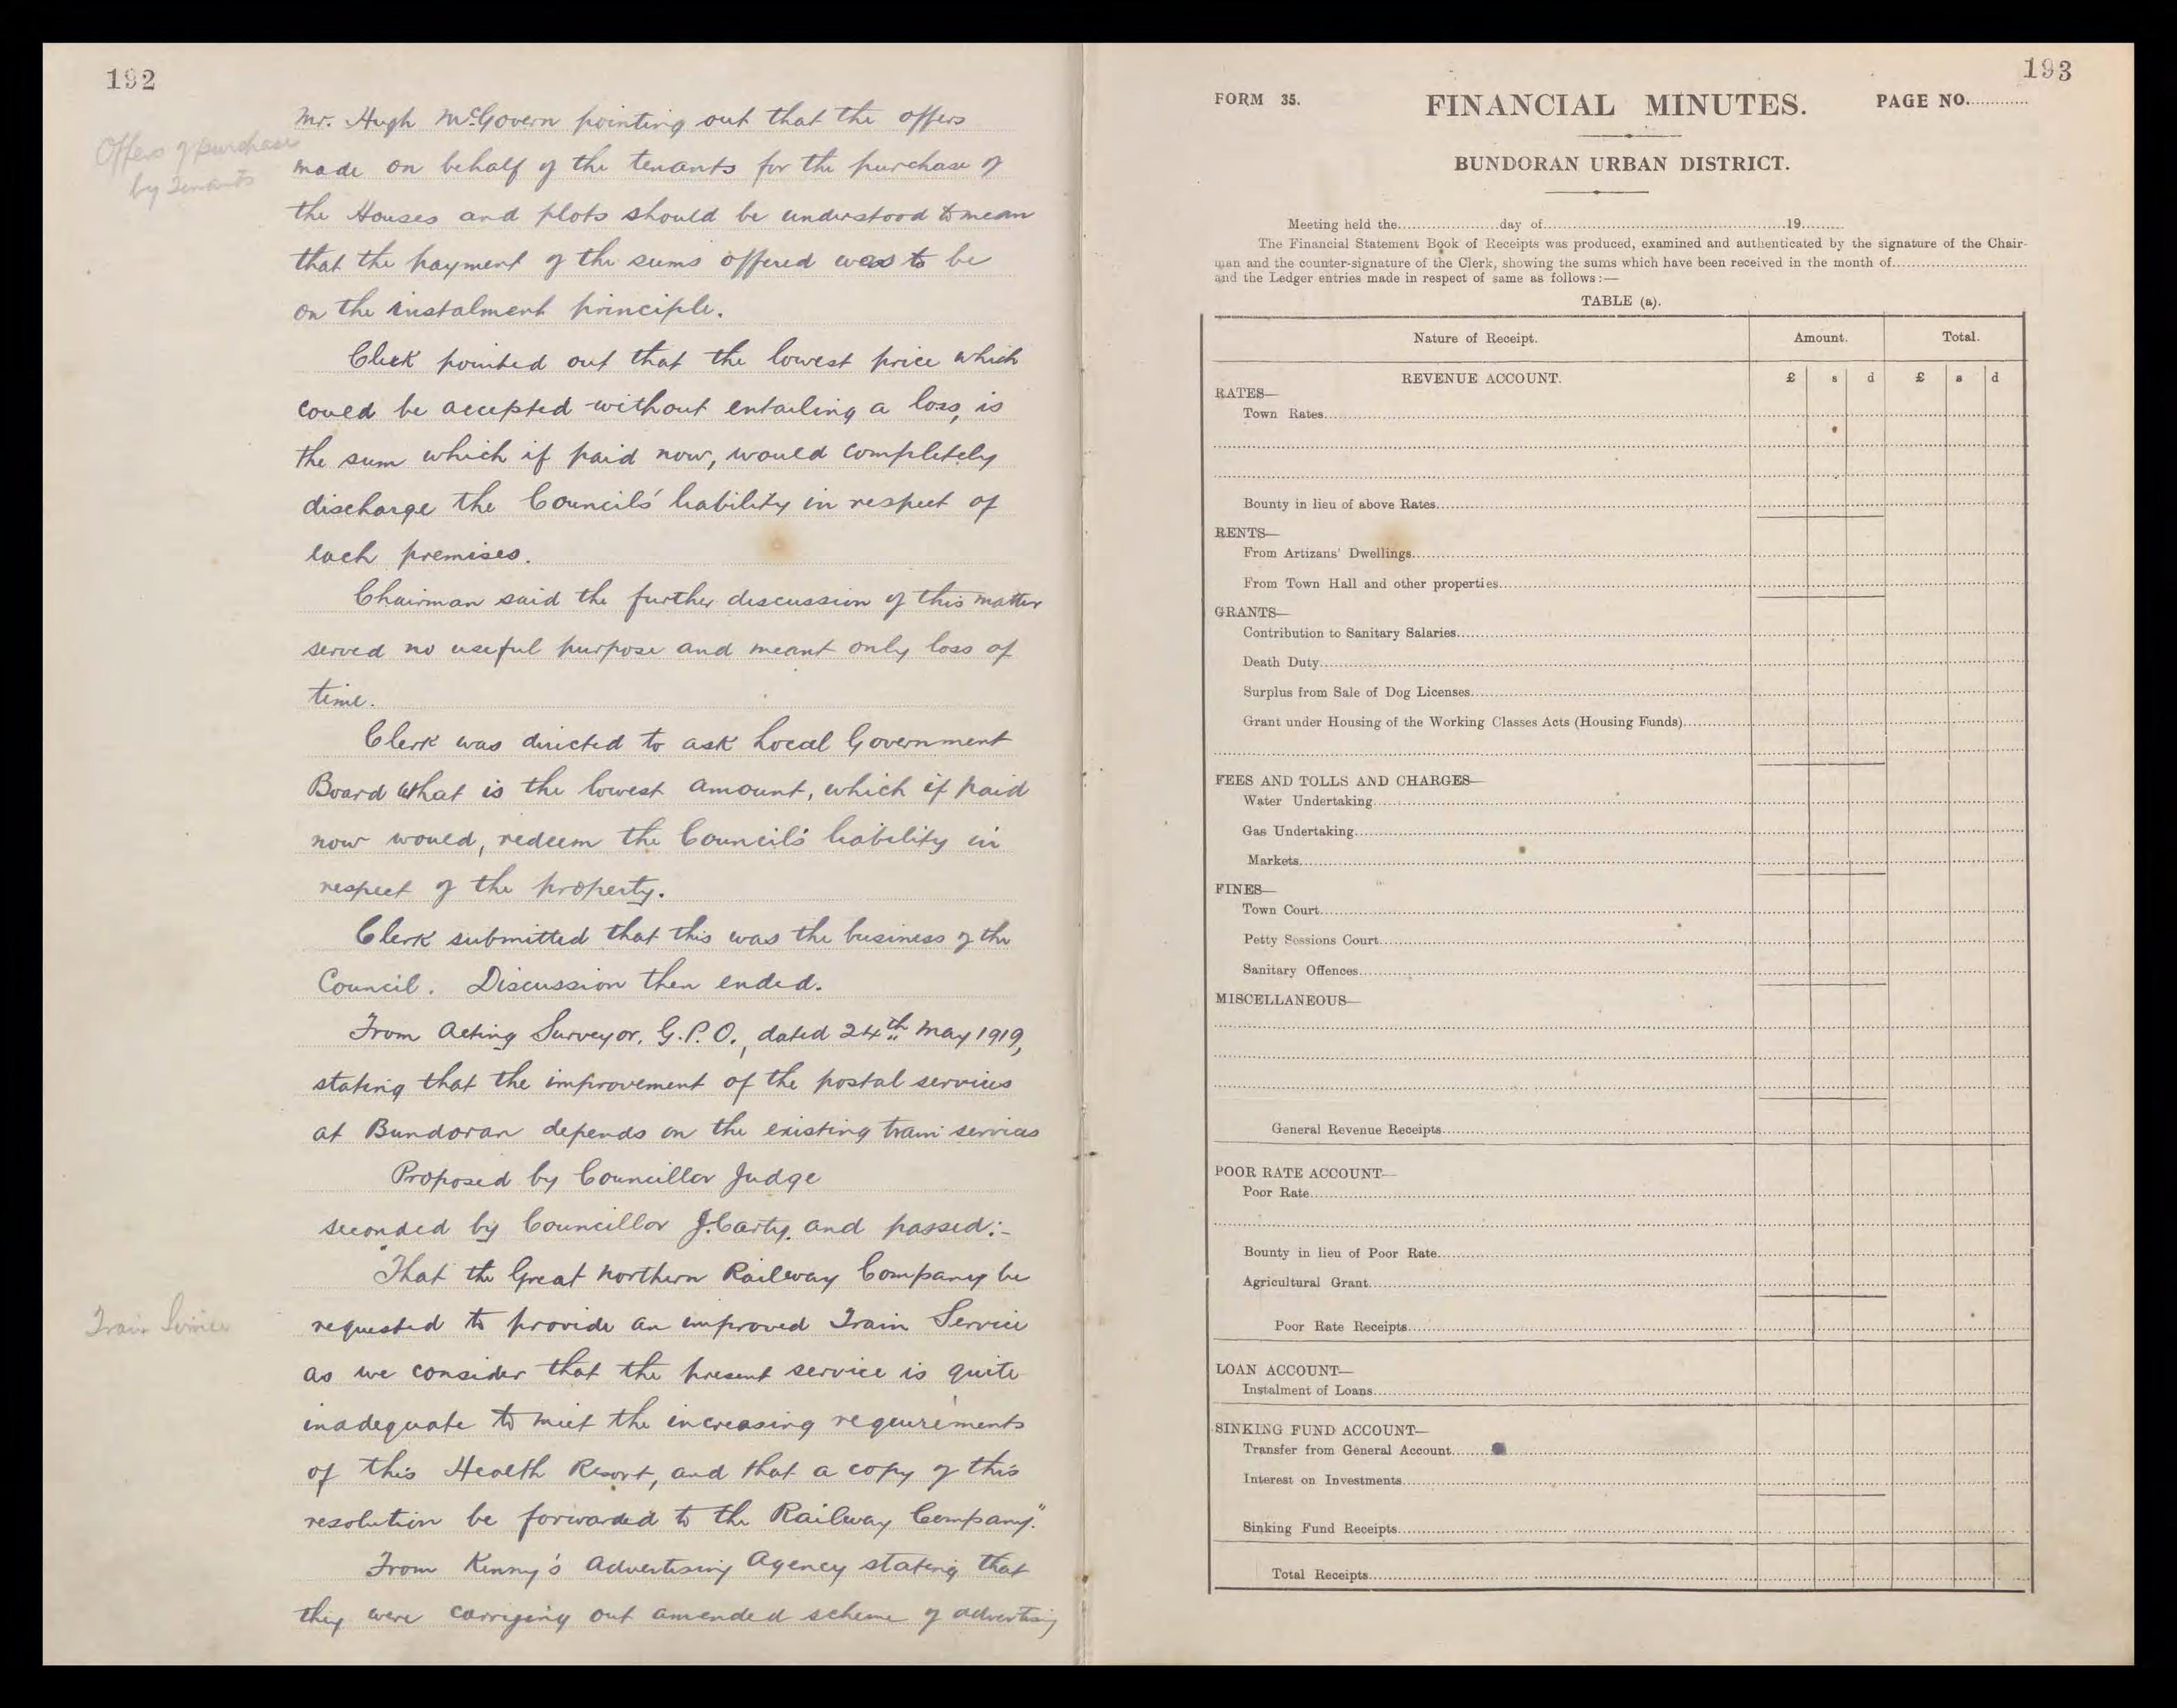 192
Offers of purchase
by Tenants
Mr. Hugh McGovern pointing out that the offers
made on behalf of the tenants for the purchase of
the Houses and plots should be understood to mean
that the payment of the sums offered was to be
on the instalment principle.
Clerk pointed out that the lowest price which
could be accepted without entailing a loss, is
the sum which if paid now, would completely
discharge the Councils' liability in respect of
each premises.
Chairman said the further discussion of this matter
served no useful purpose and meant only loss of
time.
Clerk was directed to ask Local Government
Board what is the lowest amount, which if paid
now would, redeem the Council's liability in
respect of the property.
Clerk submitted that this was the business of the
Council. Discussion then ended.
From Acting Surveyor, G.P.O., dated 24th May 1919,
stating that the improvement of the postal services
at Bundoran depends on the existing train services
Proposed by Councillor Judge
seconded by Councillor J. Carty. and passed:-
"That the Great Northern Railway Company be
Train Service
requested to provide an improved Train Service
as we consider that the present service is quite
inadequate to meet the increasing requirements
of this Health Resort, and that a copy of this
resolution be forwarded to the Railway Company."
From Kenny's Advertising Agency stating that
they were carrying out amended scheme of advertising
193
FORM 35.
FINANCIAL MINUTES.
PAGE NO............
BUNDORAN URBAN DISTRICT.
Meeting held the....................day of................................................19.........
The Financial Statement Book of Receipts was produced, examined and authenticated by the signature of the Chair-
man and the counter-signature of the Clerk, showing the sums which have been received in the month of...........................
and the Ledger entries made in respect of same as follows:—
TABLE (a).
Nature of Receipt. Amount. Total.
REVENUE ACCOUNT. £ s d £ s d
RATES—
Town Rates
Bounty in lieu of above Rates
RENTS—
From Artizans' Dwellings
From Town Hall and other properties
GRANTS—
Contribution to Sanitary Salaries
Death Duty
Surplus from Sale of Dog Licenses
Grant under Housing of the Working Classes Acts (Housing Funds)
FEES AND TOLLS AND CHARGES—
Water Undertaking
Gas Undertaking
Markets
FINES—
Town Court
Petty Sessions Court
Sanitary Offences
MISCELLANEOUS—
General Revenue Receipts
POOR RATE ACCOUNT—
Poor Rate
Bounty in lieu of Poor Rate
Agricultural Grant
Poor Rate Receipts
LOAN ACCOUNT—
Instalment of Loans
SINKING FUND ACCOUNT—
Transfer from General Account
Interest on Investments
Sinking Fund Receipts
Total Receipts